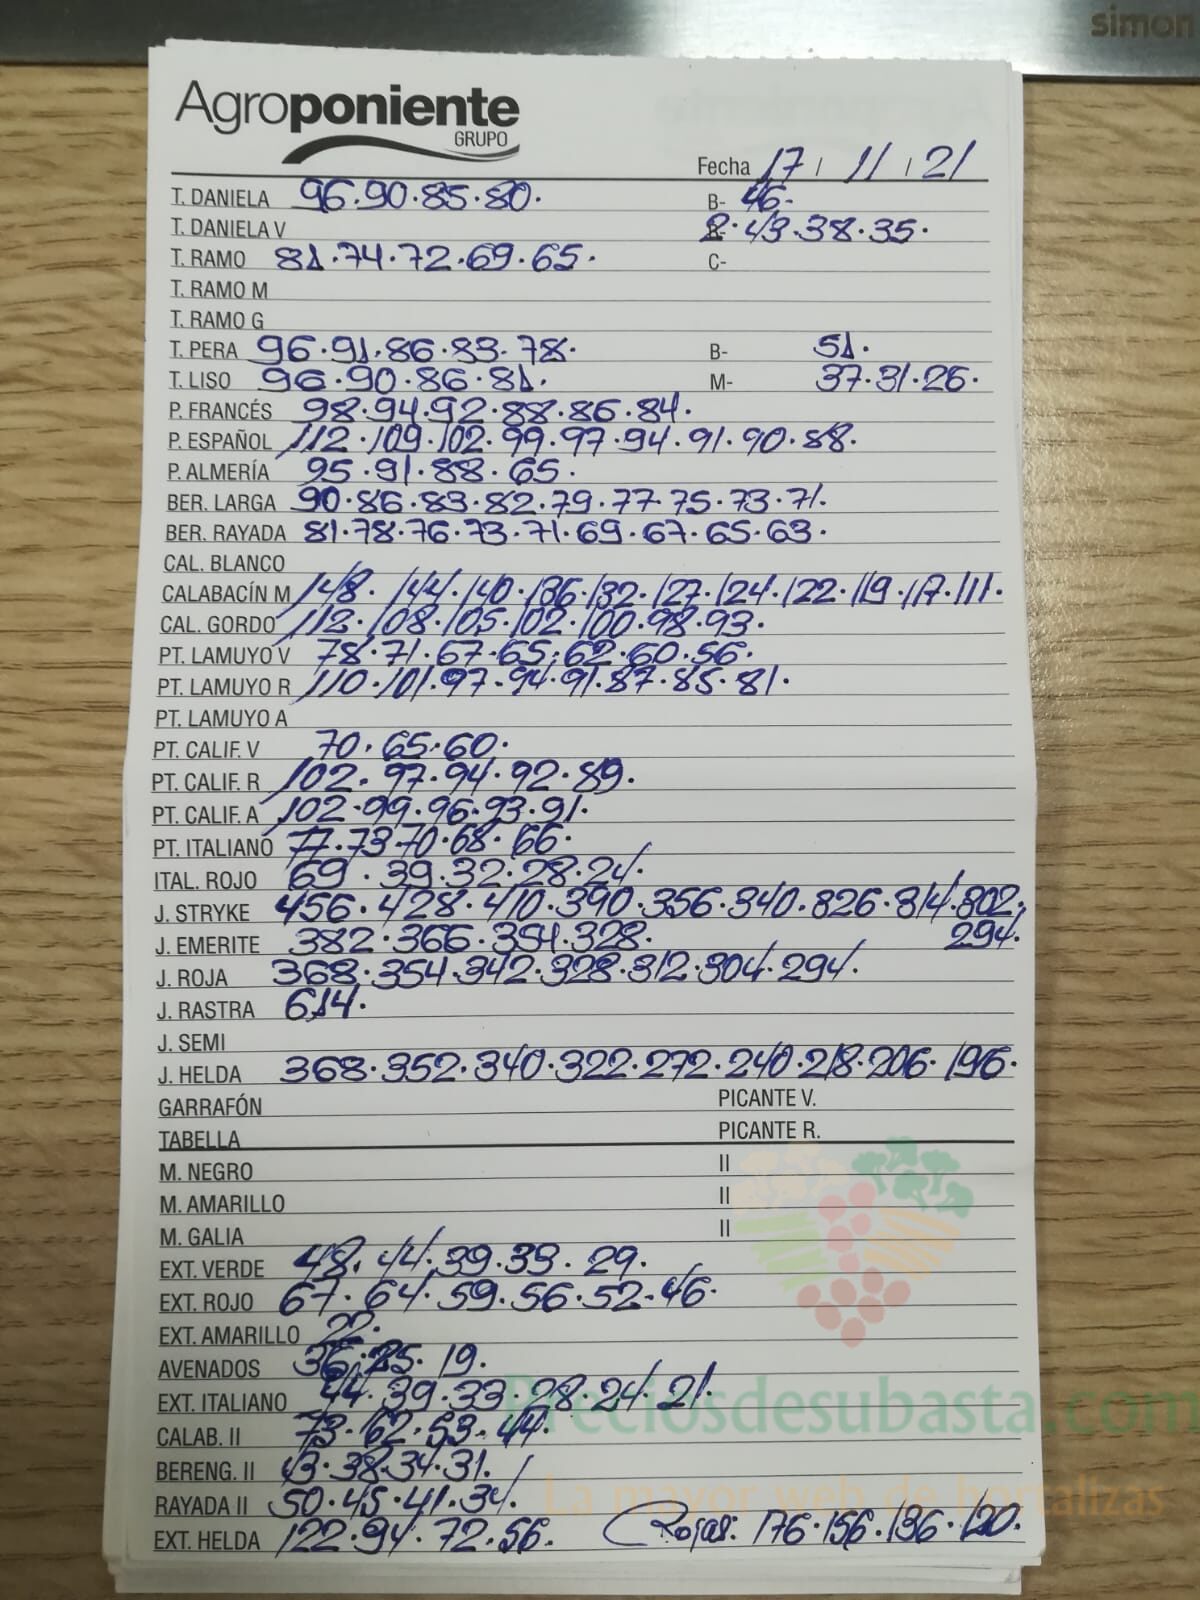 simon
Agroponiente
GRUPO
Fecha 17 / 11 / 21
T. DANIELA 96.90.85.80. B- 46.
T. DANIELA V 2.43.38.35.
T. RAMO 81.74.72.69.65. C-
T. RAMO M
T. RAMO G
T. PERA 96.91.86.83.78. B- 51.
T. LISO 96.90.86.81. M- 37.31.26.
P. FRANCÉS 98.94.92.88.86.84.
P. ESPAÑOL 112.109.102.99.97.94.91.90.88.
P. ALMERÍA 95.91.88.65.
BER. LARGA 90.86.83.82.79.77.75.73.71.
BER. RAYADA 81.78.76.73.71.69.67.65.63.
CAL. BLANCO
CALABACÍN M 148.144.140.136.132.127.124.122.119.117.111.
CAL. GORDO 112.108.105.102.100.98.93.
PT. LAMUYO V 78.71.67.65.62.60.56.
PT. LAMUYO R 110.101.97.94.91.87.85.81.
PT. LAMUYO A
PT. CALIF. V 70.65.60.
PT. CALIF. R 102.97.94.92.89.
PT. CALIF. A 102.99.96.93.91.
PT. ITALIANO 77.73.70.68.66.
ITAL. ROJO 69.39.32.28.24.
J. STRYKE 456.428.410.390.356.340.326.314.302.
J. EMERITE 382.366.354.328. 294.
J. ROJA 368.354.342.328.312.304.294.
J. RASTRA 614.
J. SEMI
J. HELDA 368.352.340.322.272.240.218.206.196.
GARRAFÓN PICANTE V.
TABELLA PICANTE R.
M. NEGRO II
M. AMARILLO II
M. GALIA II
EXT. VERDE 48.44.39.33.29.
EXT. ROJO 67.64.59.56.52.46.
EXT. AMARILLO 22.
AVENADOS 36.25.19.
EXT. ITALIANO 44.39.33.28.24.21.
Preciosdesubasta.com
CALAB. II 73.62.53.44.
BERENG. II 43.38.34.31.
La mayor web de hortalizas
RAYADA II 50.45.41.34.
EXT. HELDA 122.94.72.56. (Rojas: 176.156.136.120.